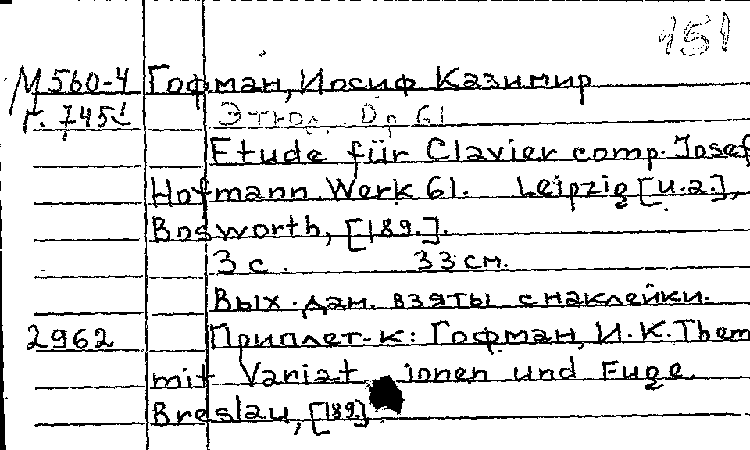 151
М 560-4 Гофман, Иосиф Казимир
г. 745
Этюд. Op 61
Etude für Clavier comp. Josef
Hofmann. Werk 61. Leipzig [u.a.],
Bosworth, [189.].
3 с. 33 см.
Вых. дан. взяты с наклейки.
2962 Приплет. к: Гофман, И.К. Them
mit Variationen und Fuge.
Breslau, [189]